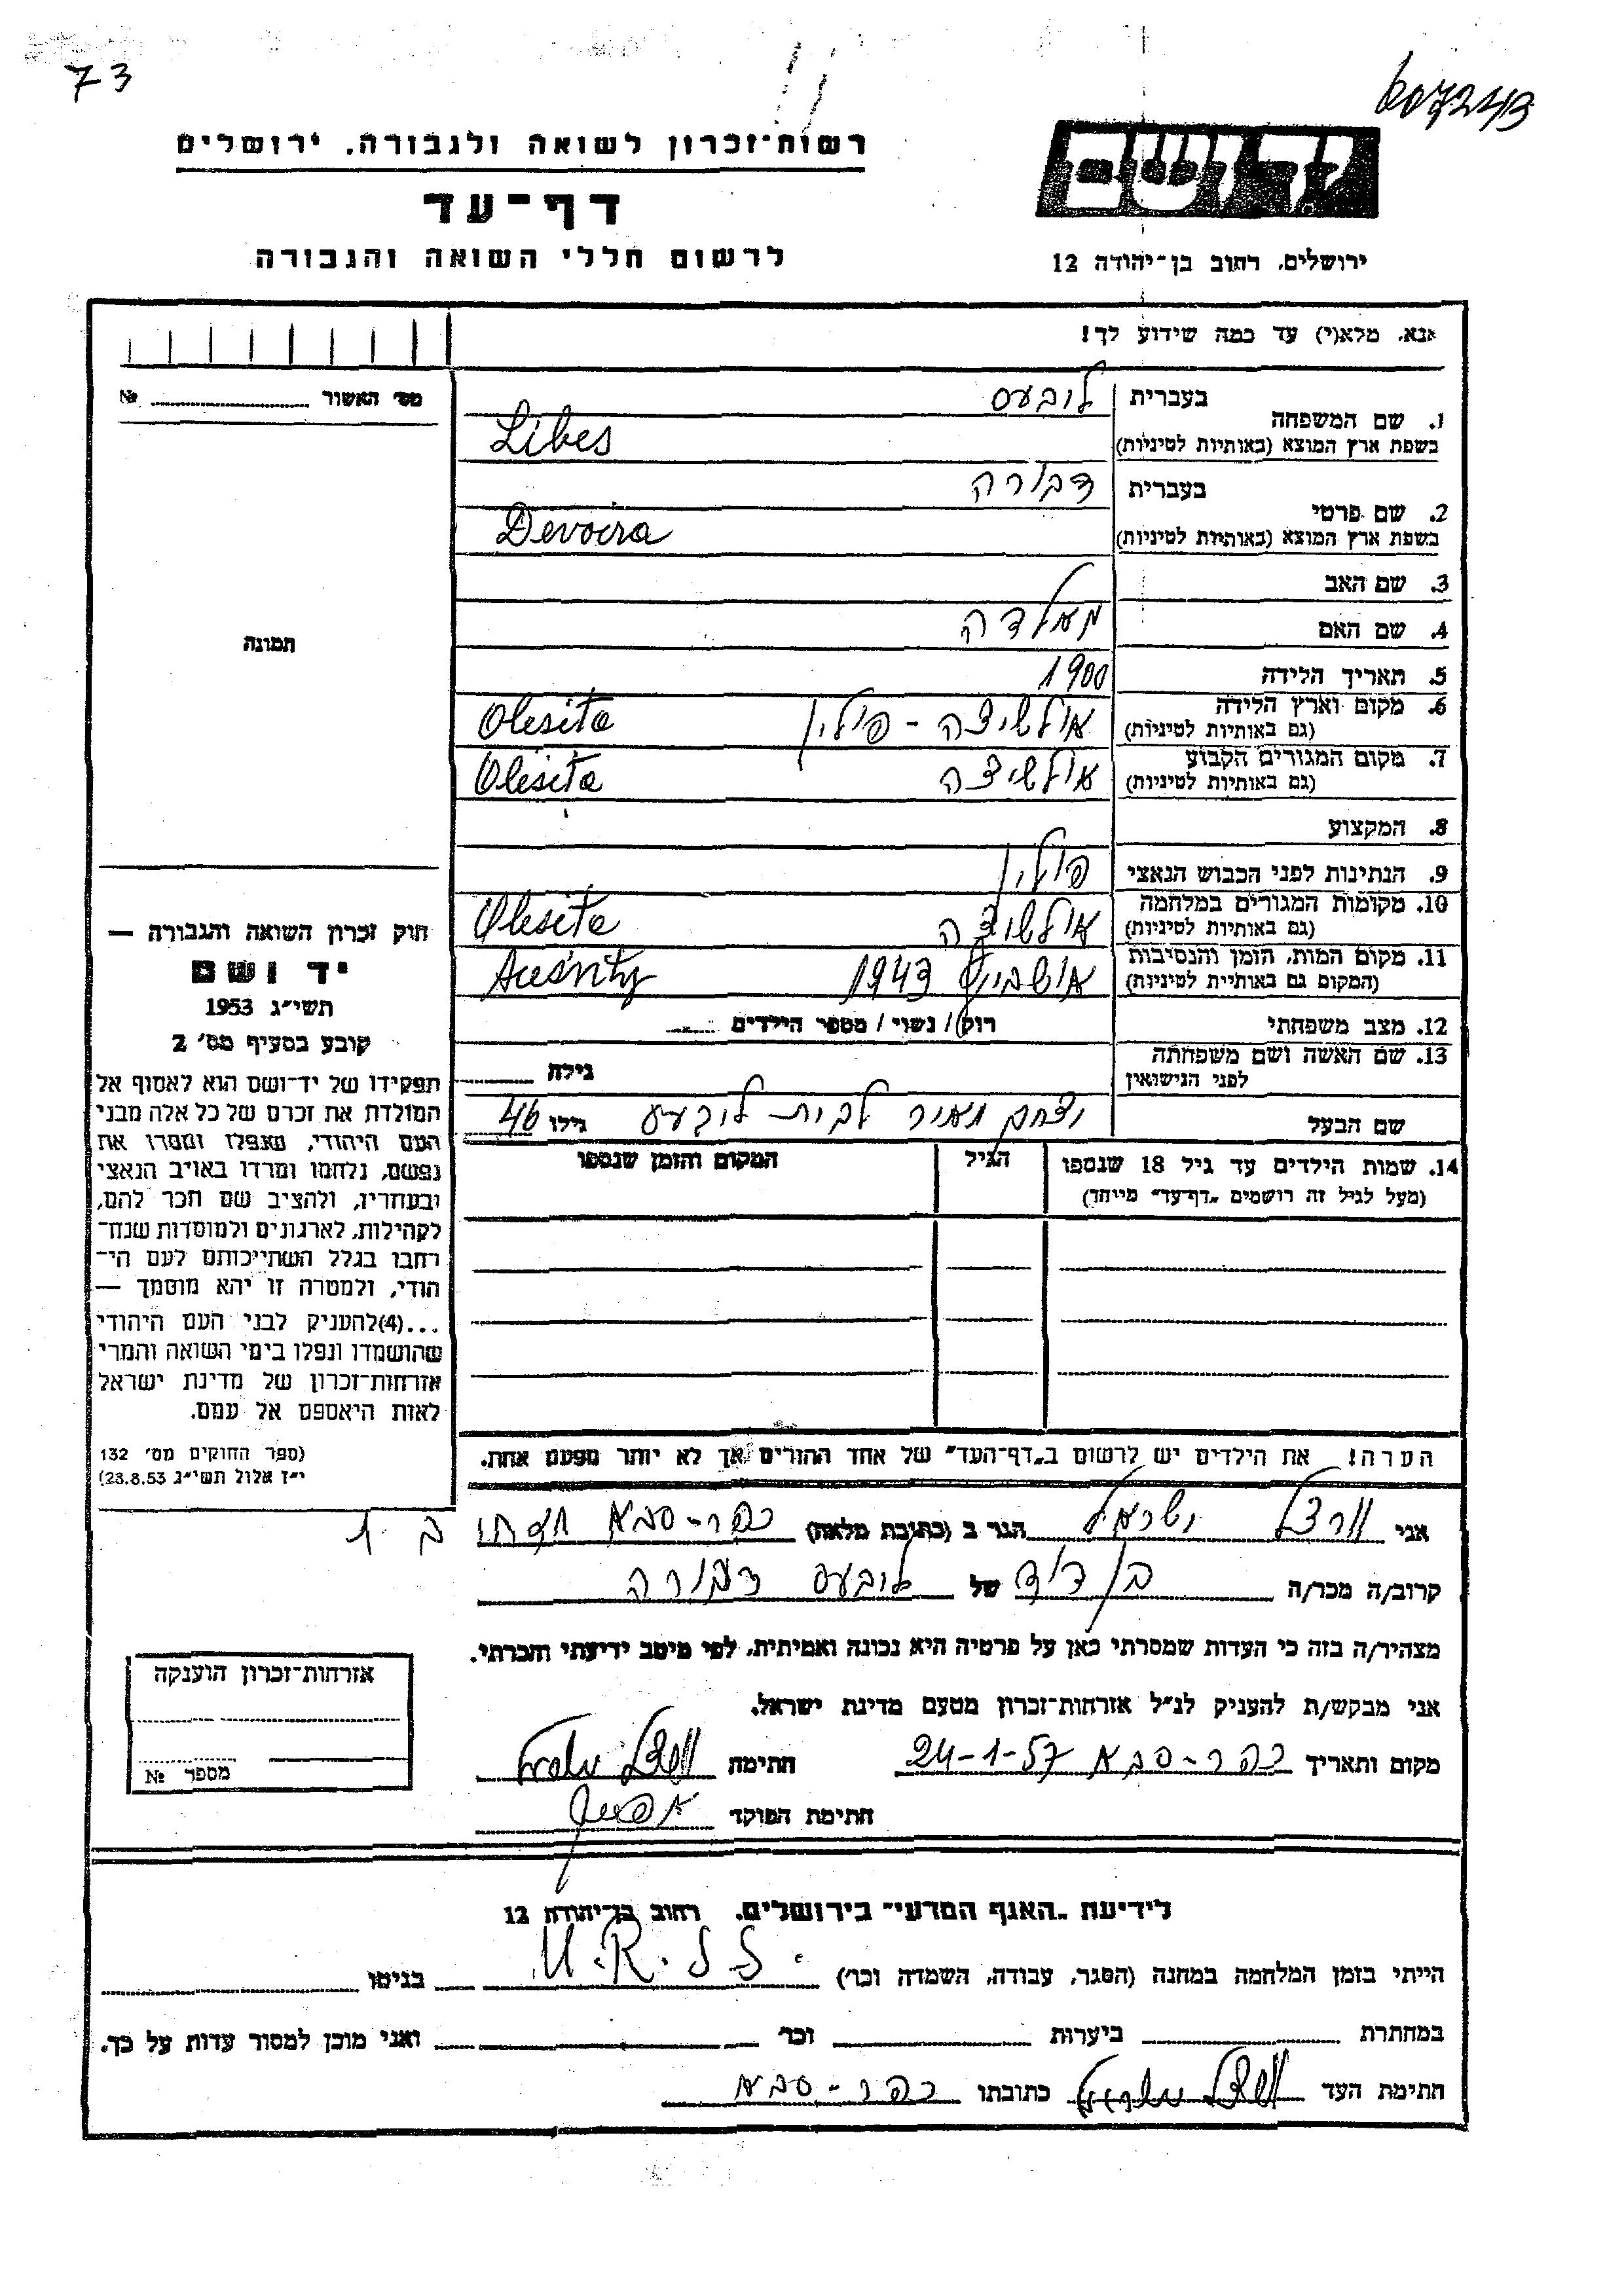 73
607243
רשות-זכרון לשואה ולגבורה, ירושלים
דף-עד
לרשום חללי השואה והגבורה
יד ושם
ירושלים, רחוב בן-יהודה 12
אנא, מלא(י) עד כמה שידוע לך!
מס' האשור № 
1. שם המשפחה
בעברית לובעס
בשפת ארץ המוצא (באותיות לטיניות) Libes
2. שם פרטי
בעברית דבורה
בשפת ארץ המוצא (באותיות לטיניות) Devoira
3. שם האב
4. שם האם מאלדה
5. תאריך הלידה 1900
6. מקום וארץ הלידה (גם באותיות לטיניות) אולשיצה - פולין Olesita
7. מקום המגורים הקבוע (גם באותיות לטיניות) אולשיצה Olesita
8. המקצוע
9. הנתינות לפני הכבוש הנאצי פולין
10. מקומות המגורים במלחמה (גם באותיות לטיניות) אולשיצה Olesita
11. מקום המות, הזמן והנסיבות (המקום גם באותיות לטיניות) 1943
12. מצב משפחתי רווק / נשוי / מספר הילדים
13. שם האשה ושם משפחתה לפני הנישואין גילה
שם הבעל יצחק מאיר לבית ליבעס גילו 46
14. שמות הילדים עד גיל 18 שנספו הגיל המקום והזמן שנספו
(מעל לגיל זה רושמים "דף-עד" מייחד)
תמונה
חוק זכרון השואה והגבורה —
יד ושם
תשי"ג 1953
קובע בסעיף מס' 2
תפקידו של יד-ושם הוא לאסוף אל
המולדת את זכרם של כל אלה מבני
העם היהודי, שנפלו ומסרו את
נפשם, נלחמו ומרדו באויב הנאצי
ובעוזריו, ולהציב שם וזכר להם,
לקהילות, לארגונים ולמוסדות שנח-
רבו בגלל השתייכותם לעם הי-
הודי, ולמטרה זו יהא מוסמך —
...(4) להעניק לבני העם היהודי
שהושמדו ונפלו בימי השואה והמרי
אזרחות-זכרון של מדינת ישראל
לאות היאספם אל עמם.
(ספר החוקים מס' 132
י"ז אלול תשי"ג 28.8.53)
הערה! את הילדים יש לרשום ב"דף-העד" של אחד ההורים אך לא יותר מפעם אחת.
אני ישראל הגר ב (כתובת מלאה) כפר-סבא
קרוב/ה מכר/ה בן דוד של לובעס דבורה
מצהיר/ה בזה כי העדות שמסרתי כאן על פרטיה היא נכונה ואמיתית, לפי מיטב ידיעתי והכרתי.
אני מבקש/ת להעניק לנ"ל אזרחות-זכרון מטעם מדינת ישראל.
מקום ותאריך כפר-סבא 24-1-57 חתימה
חתימת הפוקד
אזרחות-זכרון הוענקה
מספר №
לידיעת "האגף המדעי" בירושלים, רחוב בן-יהודה 12
הייתי בזמן המלחמה במחנה (הסגר, עבודה, השמדה וכו') U.R.S.S. בגיטו
במחתרת ביערות וכו' ואני מוכן למסור עדות על כך.
חתימת העד כתובתו כפר-סבא